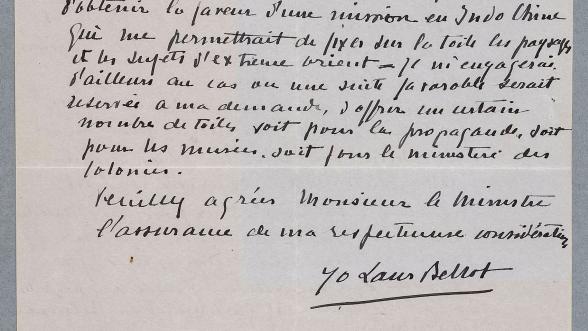 d'obtenir la faveur d'une mission en Indo Chine
qui me permettrait de fixer sur la toile les paysages
et les sujets d'extreme orient – je m'engagerai
d'ailleurs au cas ou une suite favorable serait
reservée a ma demande, d'offrir un certain
nombre de toiles soit pour la propagande, soit
pour les musées, soit pour le ministere des
Colonies.
Veuillez agréer Monsieur le Ministre
l'assurance de ma respectueuse considération
Yo Laur Bellot